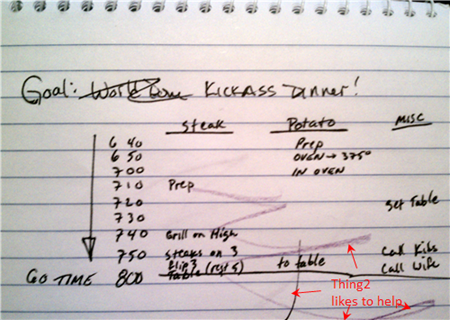 Goal: World Dom KICKASS DINNER!
steak Potato MISC
6 40 Prep
6 50 OVEN → 375°
7 00 IN OVEN
7 10 Prep
7 20 set Table
7 30
7 40 Grill on High
7 50 steaks on 3 Call Kids
Flip 3 Call Wife
GO TIME 8 00 Table (rest 5) to table
Thing2
likes to help